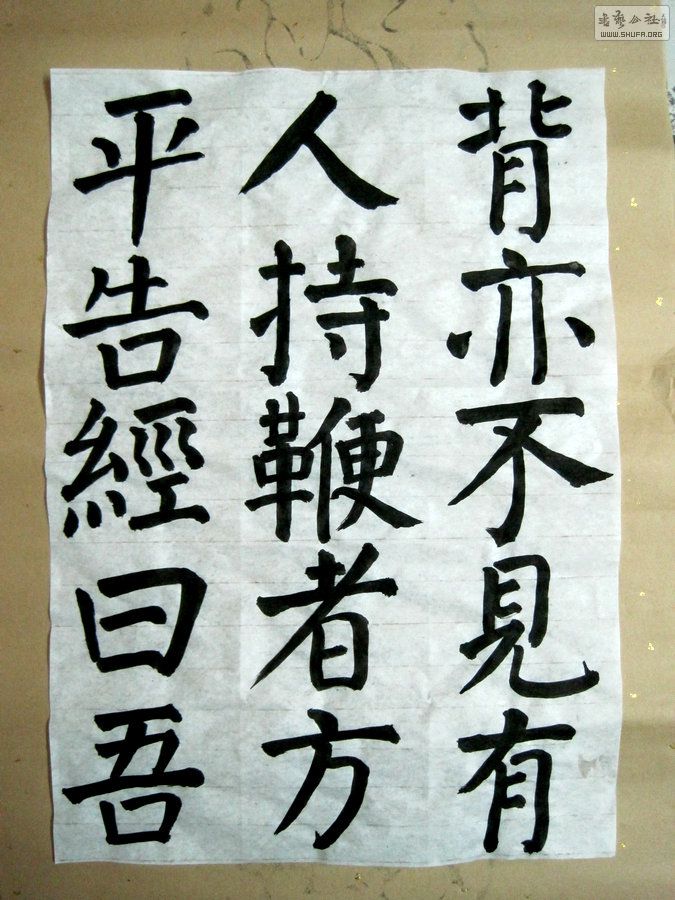 背亦不見有
人持鞭者方
平告經曰吾
书艺公社
WWW.SHUFA.ORG